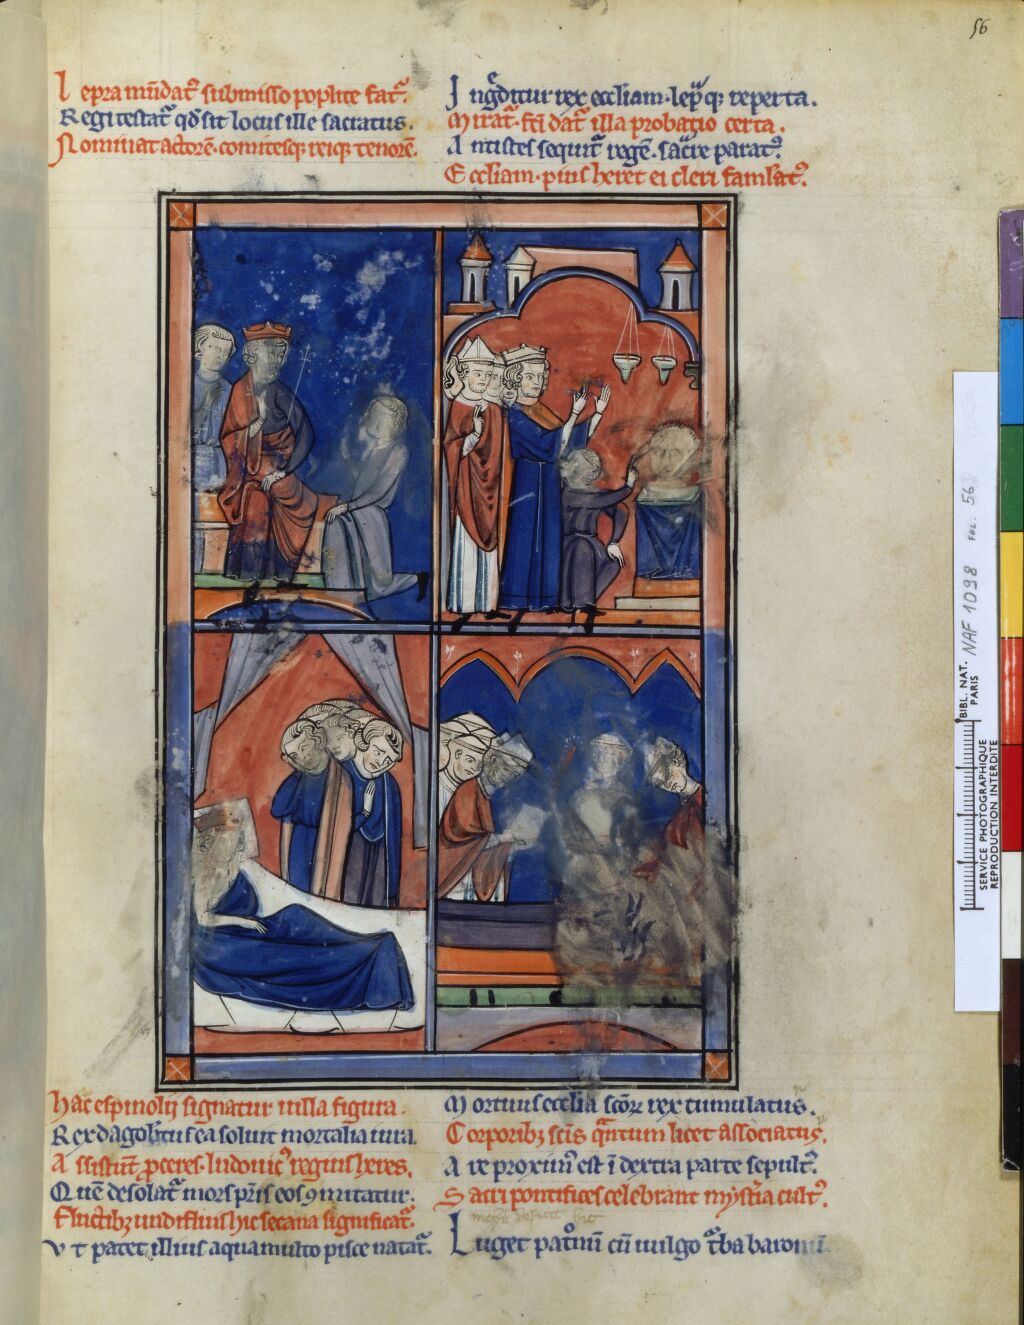 56
Lepra mūdat᷒ submisso poplite fat᷒.
Regi testat᷒ qđ sit locus ille sacratus.
Nominat actorē comitesq; reiq; tenorē.
Ingditur rex eccliam lepq; reperta.
Mirat᷒ fit dat᷒ illa probatio certa.
Antistes sequit᷒ regē sacre parat᷒.
Eccliam pius heret ei cleri famlat᷒.
hac espinolii signatur uilla figura.
Rex dagobtus ea soluit mortalia iura.
Assistunt pceres ludouic᷒ regius heres.
Quē desolat᷒ mors pris eos 9mitatur.
Fluctibz undifluus hic secana significat᷒.
Ut patet illius aqua multo pisce natat᷒.
Mortuus ecclia scōꝝ rex tumulatus.
Corporibz scis qntum licet associatus.
Are proximus est ī dextra parte sepult᷒.
Sacri pontifices celebrant mystia cult᷒.
Luget patonū cū uulgo tba
BIBL. NAT. PARIS
NAF 1098 FOL. 56
SERVICE PHOTOGRAPHIQUE
REPRODUCTION INTERDITE